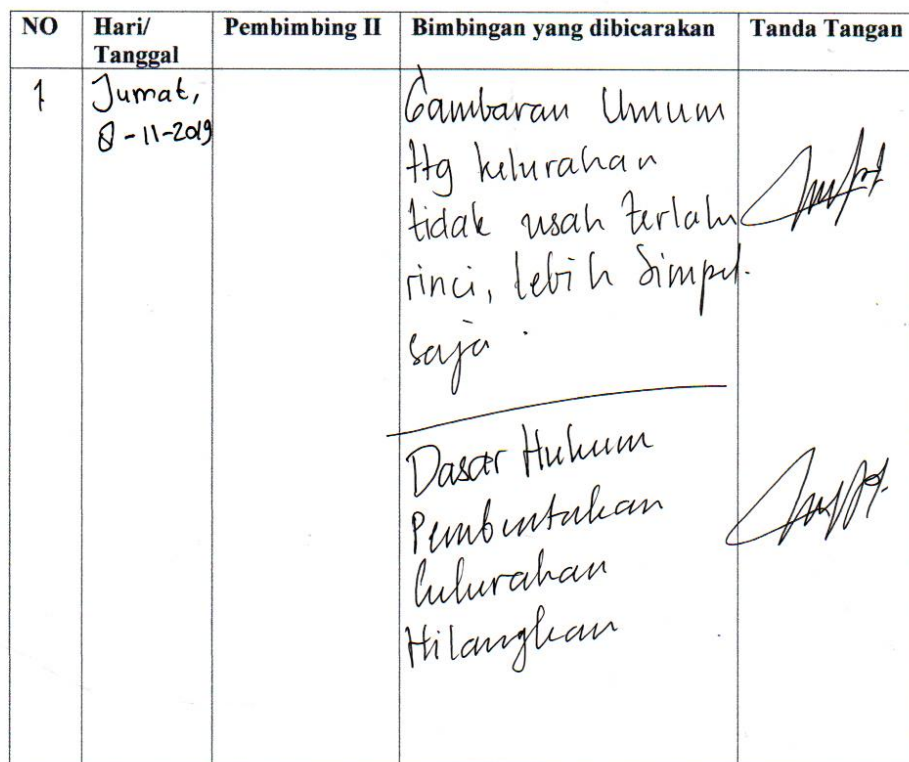 NO Hari/ Tanggal Pembimbing II Bimbingan yang dibicarakan Tanda Tangan
1 Jumat,
8-11-2019
Gambaran Umum
ttg kelurahan
tidak usah terlalu
rinci, lebih simpel
saja.
Dasar Hukum
Pembentukan
kelurahan
Hilangkan